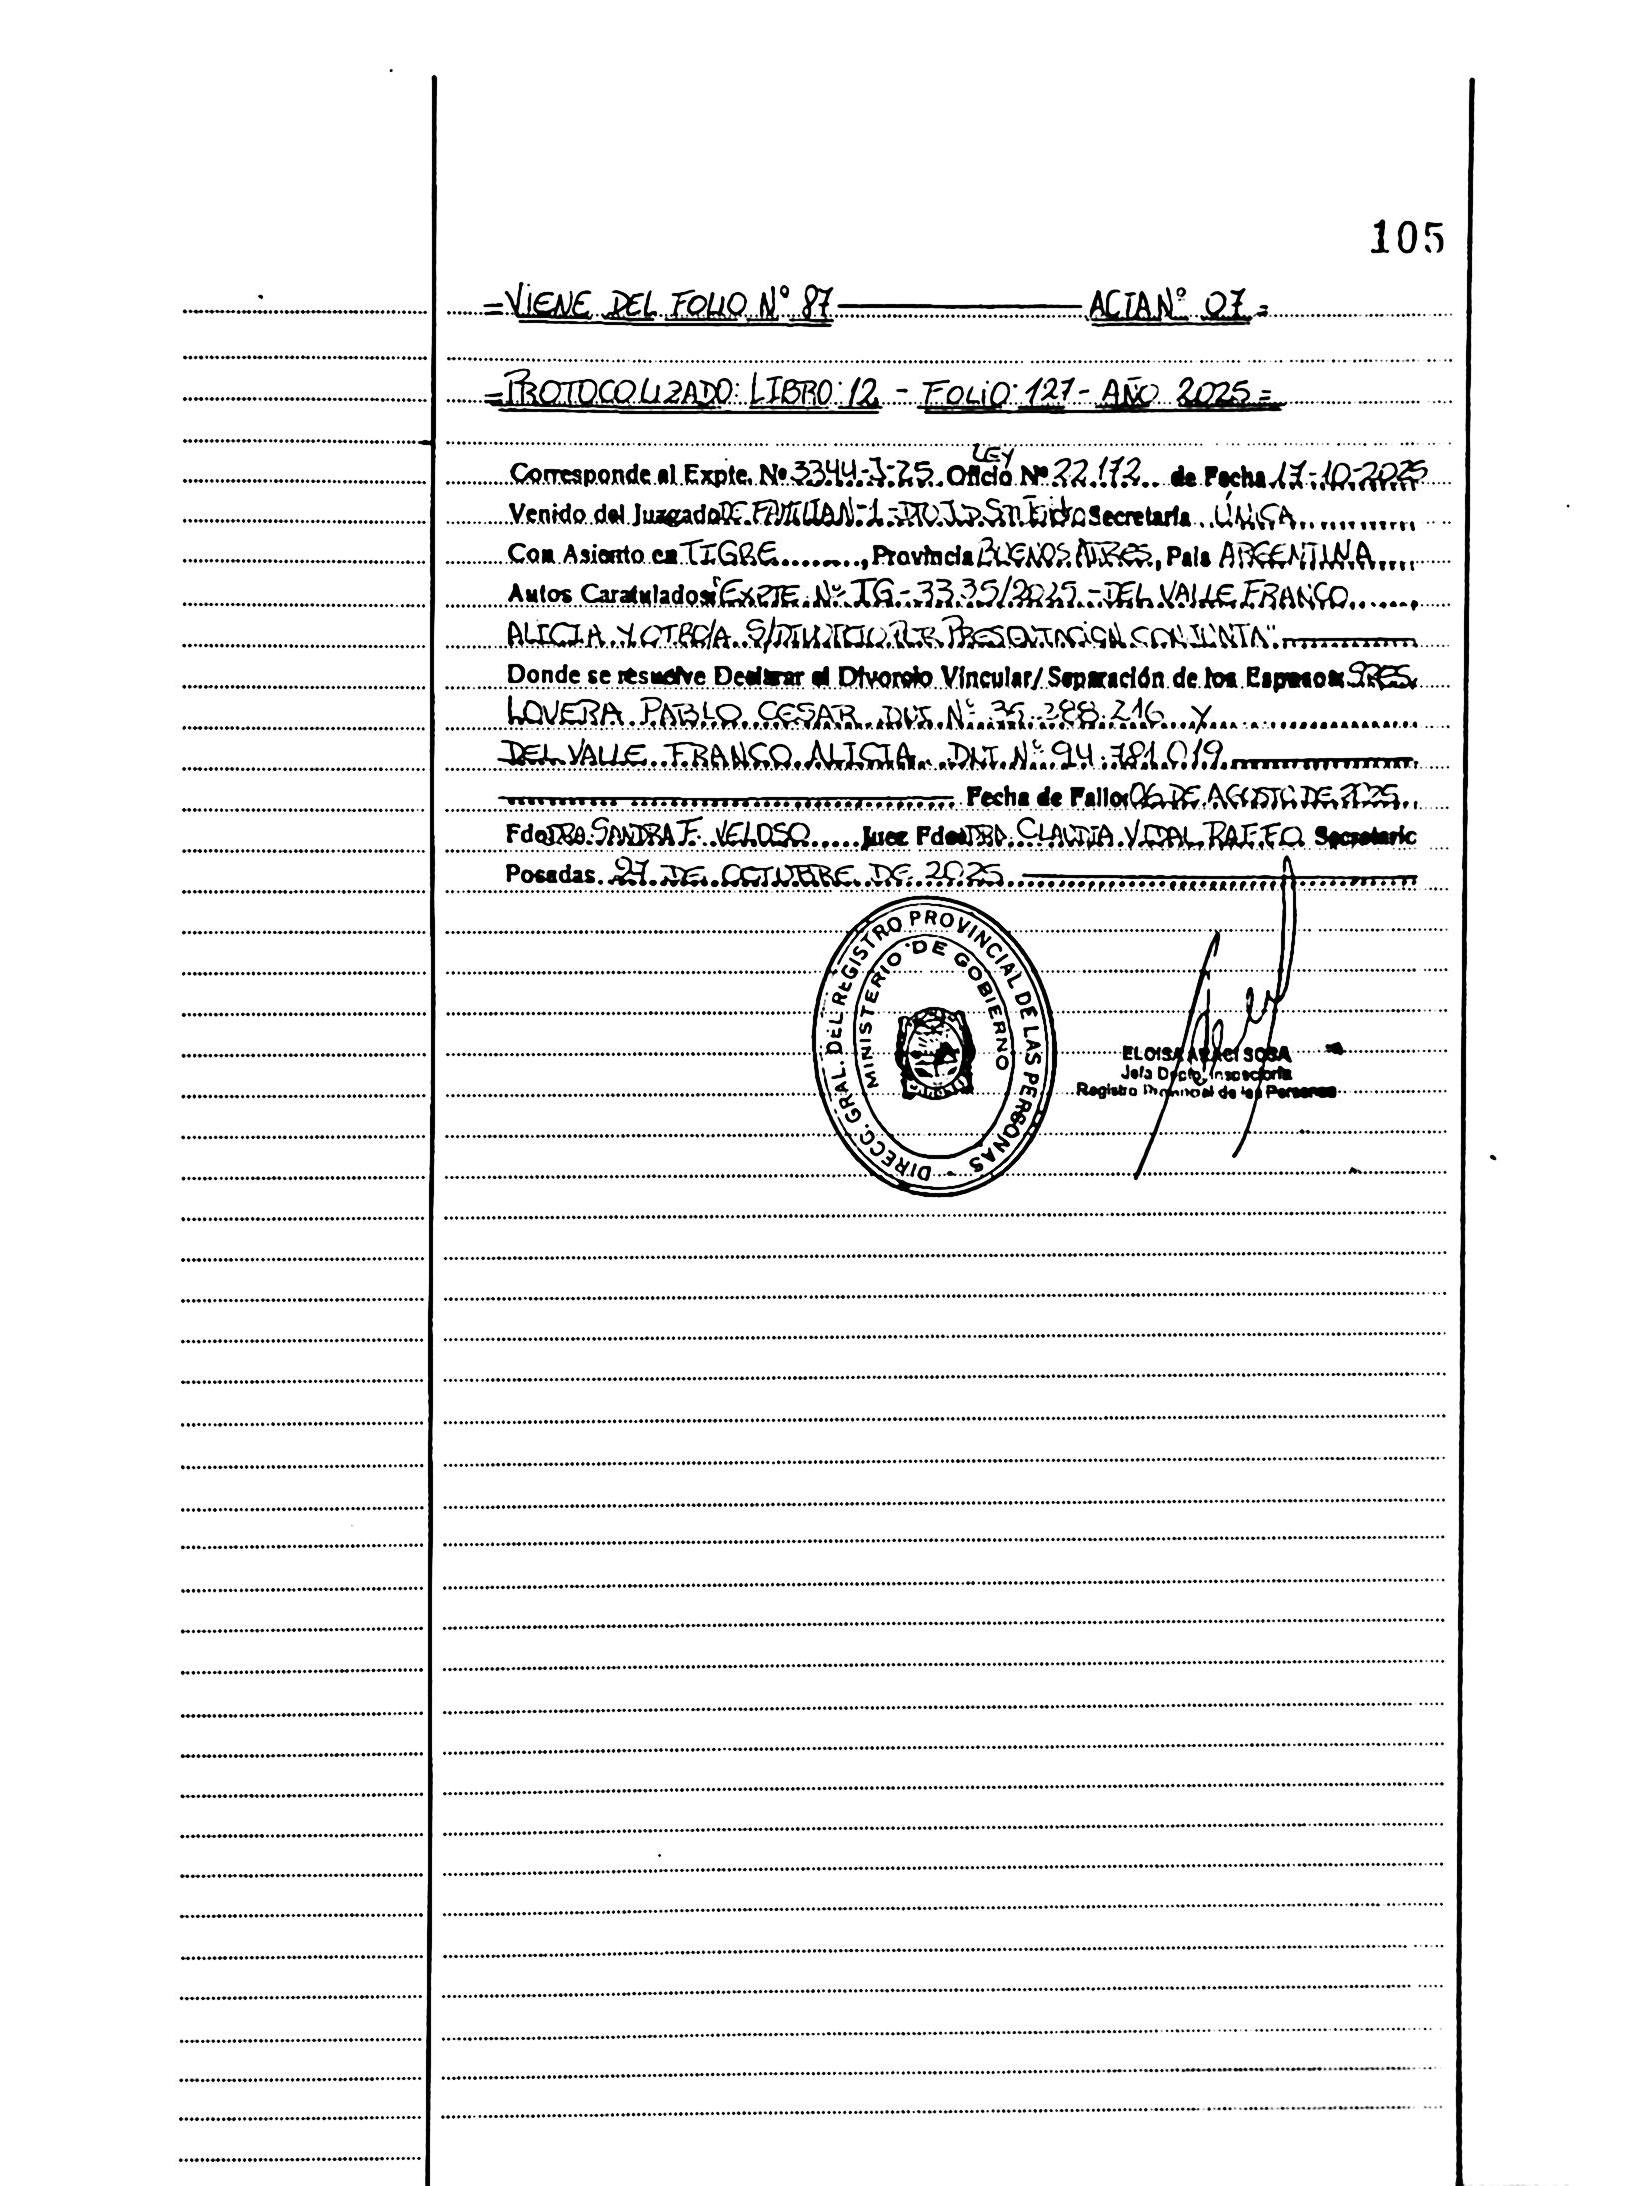 105
=VIENE DEL FOLIO N° 87 ACTA N° 07=
=PROTOCOLIZADO: LIBRO: 12 - FOLIO: 127 - AÑO 2025=
LEY
Corresponde al Expte. Nº 3344-J-25. Oficio Nº 22.172.. de Fecha 17-10-2025
Venido del Juzgado DE FAMILIA N-1- Secretaria ÚNICA
Con Asiento en TIGRE........, Provincia BUENOS AIRES, País ARGENTINA
Autos Caratulados: "EXPTE. N° TG-3335/2025-DEL VALLE FRANCO
ALICIA Y OTRO/A S/DIVORCIO POR PRESENTACIÓN CONJUNTA"
Donde se resuelve Declarar el Divorcio Vincular/ Separación de los Esposos: SRES.
LOVERA PABLO CESAR DNI. N° 216 Y
DEL VALLE FRANCO ALICIA. DNI. N° 94.781.019
Fecha de Fallo: 06 DE AGOSTO DE 2025.
Fdo DRA. SANDRA F. VELOSO..... Juez Fdo DRA. CLAUDIA VIDAL RAFFO Secretario
Posadas 27 DE OCTUBRE DE 2025
DIRECC. GRAL. DEL REGISTRO PROVINCIAL DE LAS PERSONAS
MINISTERIO DE GOBIERNO
ELOISA ARACI SOSA
Jefa Depto. Inspectoría
Registro Provincial de las Personas